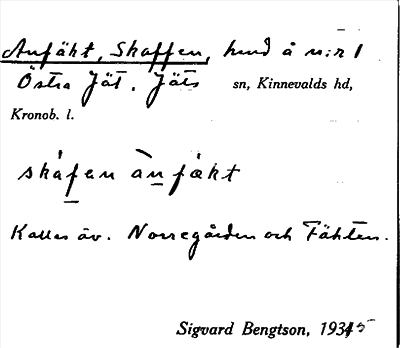 Anfäkt, Skaffen, hmd å nr 1
Östra Jät. Jäts sn, Kinnevalds hd,
Kronob. l.
skáfen ànfäkt
Kallas äv. Norregården och Fähten.
Sigvard Bengtson, 1935